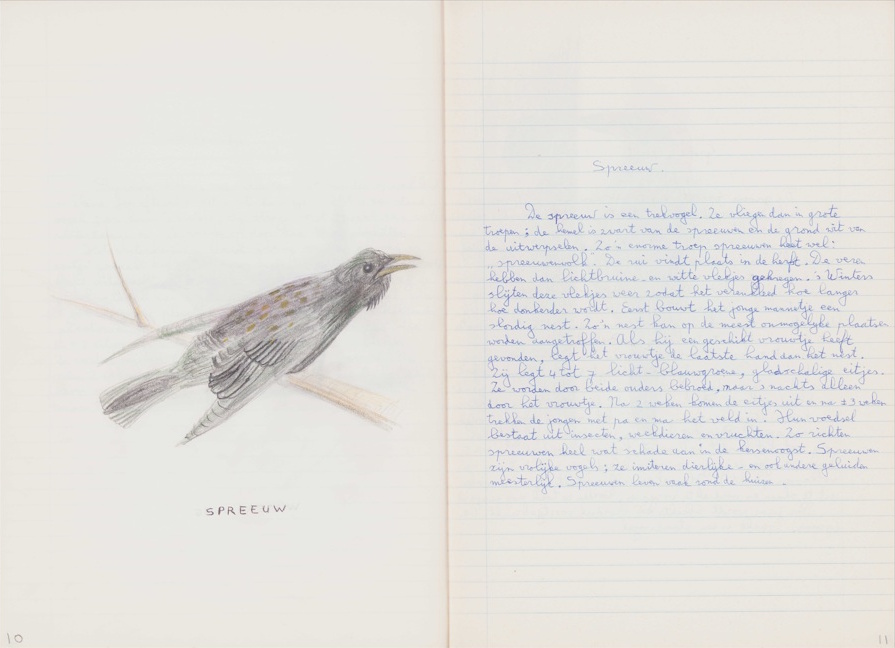 SPREEUW
10
Spreeuw.
De spreeuw is een trekvogel. Ze vliegen dan in grote
troepen; de hemel is zwart van de spreeuwen en de grond wit van
de uitwerpselen. Zo'n enorme troep spreeuwen heet wel:
"spreeuwenvolk". De rui vindt plaats in de herfst. De veren
hebben dan lichtbruine- en witte vlekjes gekregen. 's Winters
slijten deze vlekjes weer zodat het verenkleed hoe langer
hoe donkerder wordt. Eerst bouwt het jonge mannetje een
slordig nest. Zo'n nest kan op de meest onmogelijke plaatsen
worden aangetroffen. Als hij een geschikt vrouwtje heeft
gevonden, legt het vrouwtje de laatste hand aan het nest.
Zij legt 4 tot 7 licht-blauwgroene, gladschalige eitjes.
Ze worden door beide ouders bebroed, maar 's nachts alleen
door het vrouwtje. Na 2 weken komen de eitjes uit en na ± 3 weken
trekken de jongen met pa en ma het veld in. Hun voedsel
bestaat uit insecten, weekdieren en vruchten. Zo richten
spreeuwen heel wat schade aan in de kersenoogst. Spreeuwen
zijn vrolijke vogels; ze imiteren dierlijke- en ook andere geluiden
meesterlijk. Spreeuwen leven vaak rond de huizen.
11